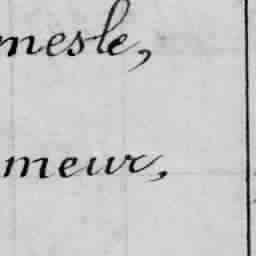 mesle,
meur,